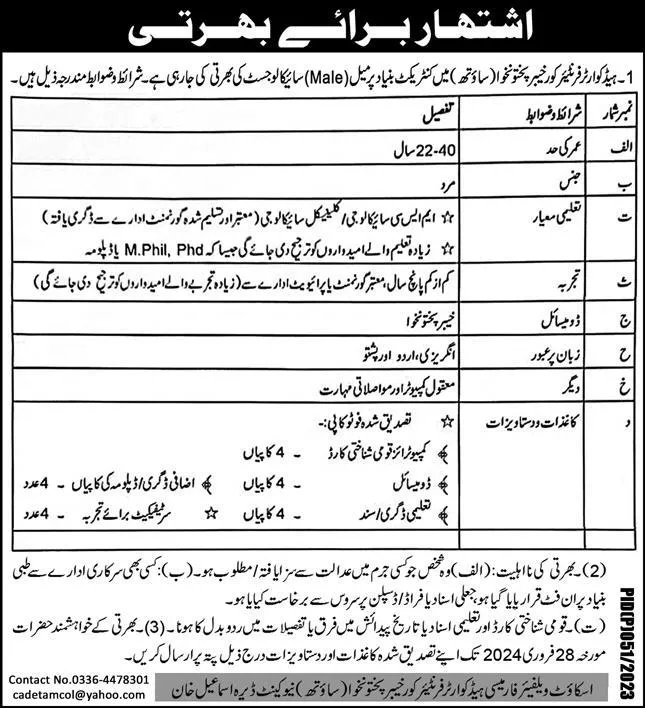 اشتہار برائے بھرتی
1۔ ہیڈکوارٹر فرنٹیئر کور خیبر پختونخوا (ساؤتھ) میں کنٹریکٹ بنیاد پر میل (Male) سائیکالوجسٹ کی بھرتی کی جا رہی ہے۔ شرائط و ضوابط مندرجہ ذیل ہیں۔
نمبر شمار شرائط و ضوابط تفصیل
الف عمر کی حد 22-40 سال
ب جنس مرد
ت تعلیمی معیار ☆ ایم ایس سی سائیکالوجی/کلینیکل سائیکالوجی (معتبر اور تسلیم شدہ گورنمنٹ ادارے سے ڈگری یافتہ)
☆ زیادہ تعلیم والے امیدواروں کو ترجیح دی جائے گی جیسا کہ M.Phil, Phd یا ڈپلومہ
ث تجربہ کم از کم پانچ سال، معتبر گورنمنٹ یا پرائیویٹ ادارے سے (زیادہ تجربے والے امیدواروں کو ترجیح دی جائے گی)
ج ڈومیسائل خیبر پختونخوا
ح زبان پر عبور انگریزی، اردو اور پشتو
خ دیگر معقول کمپیوٹر اور مواصلاتی مہارت
د کاغذات و دستاویزات ☆ تصدیق شدہ فوٹو کاپی:-
کمپیوٹرائز قومی شناختی کارڈ - 4 کاپیاں
ڈومیسائل - 4 کاپیاں اضافی ڈگری/ڈپلومہ کی کاپیاں - 4 عدد
تعلیمی ڈگری/سند - 4 کاپیاں ☆ سرٹیفکیٹ برائے تجربہ - 4 عدد
(2)۔ بھرتی کی نااہلیت: (الف) وہ شخص جو کسی جرم میں عدالت سے سزا یافتہ/مطلوب ہو۔ (ب): کسی بھی سرکاری ادارے سے طبی
بنیاد پر ان فٹ قرار پایا گیا ہو، جعلی اسناد یا فراڈ/ڈسپلن پر سروس سے برخاست کیا گیا ہو۔
(ت)۔ قومی شناختی کارڈ اور تعلیمی اسناد یا تاریخ پیدائش میں فرق یا تفصیلات میں ردوبدل کا ہونا۔ (3)۔ بھرتی کے خواہشمند حضرات
مورخہ 28 فروری 2024 تک اپنے تصدیق شدہ کاغذات اور دستاویزات درج ذیل پتہ پر ارسال کریں۔
اسکاؤٹ ویلفیئر فارمیسی ہیڈکوارٹر فرنٹیئر کور خیبر پختونخوا (ساؤتھ) نیو کینٹ ڈیرہ اسماعیل خان
Contact No.0336-4478301
cadetamcol@yahoo.com
PID(P)1051/2023